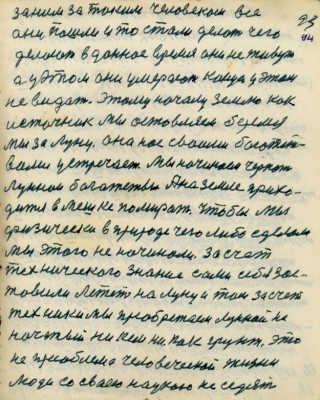 заним за таким человеком все
они пошли и то стали делат чего
делают в данное время они не живут
а у этом они умерают конца у этом
не видат. Этому началу землю как
источник мы оставляем беремся
мы за луну. она нас своими богатст-
вами устречает. Мы начинаем черпат
луннои богатствы А на земле прихо-
дится в мешке помират. Чтобы мы
физически в природе чего либо сделали
мы этого не начинали. За счет
технического знание сами себя зас-
тавили летет на луну и там за счет
техники мы приобретаем луннои не
початыи ни кем ни как грунт. Это
не проблема человеческои жизни
люди со своею наукою не седят
93
94